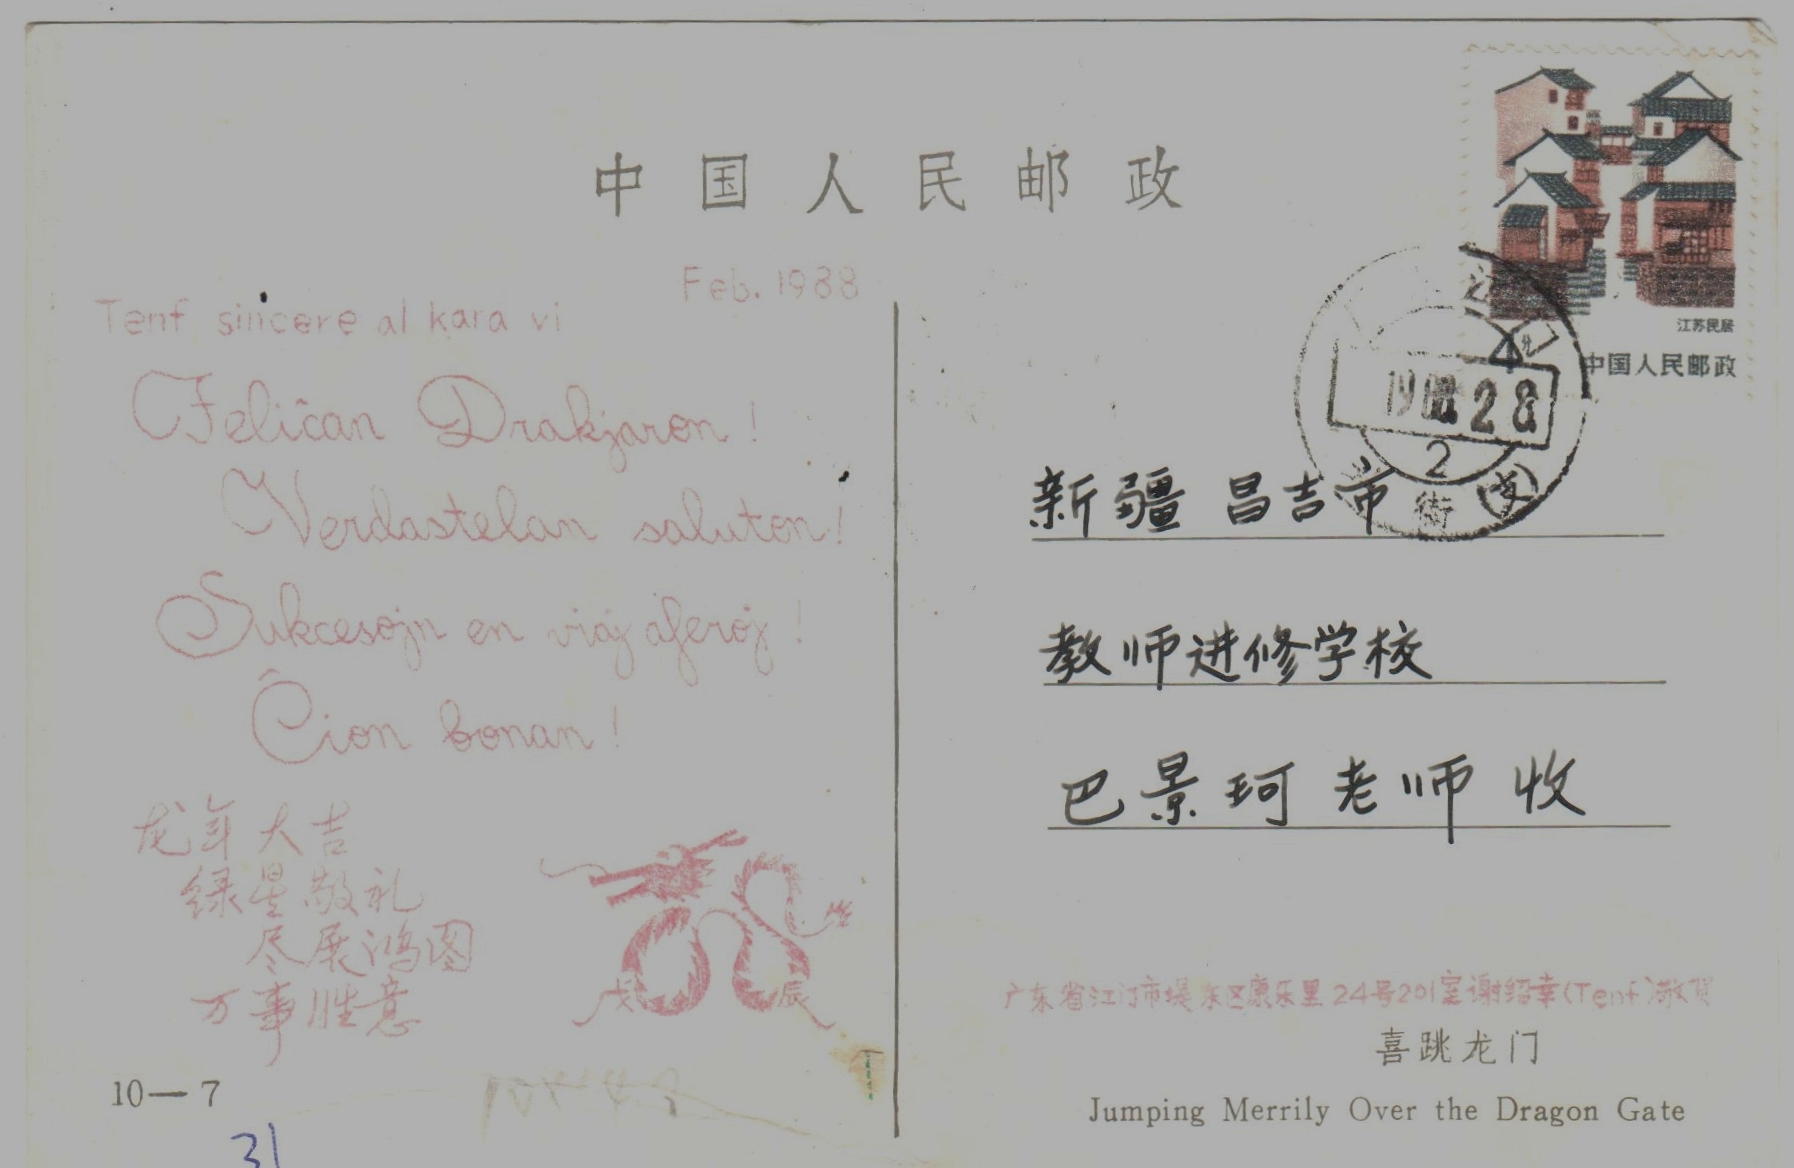 中国人民邮政
江苏民居
4分
中国人民邮政
Feb. 1988
Tenf sincere al kara vi
Feliĉan Drakjaron!
Verdastelan saluton!
Sukcesojn en viaj aferoj!
Ĉion bonan!
龙年大吉
绿星敬礼
尽展鸿图
万事胜意
戊辰
10—7
31
2
街
新疆 昌吉市
教师进修学校
巴景珂 老师 收
广东省江门市堤东区康乐里24号201室谢绍幸(Tenf)敬贺
喜跳龙门
Jumping Merrily Over the Dragon Gate